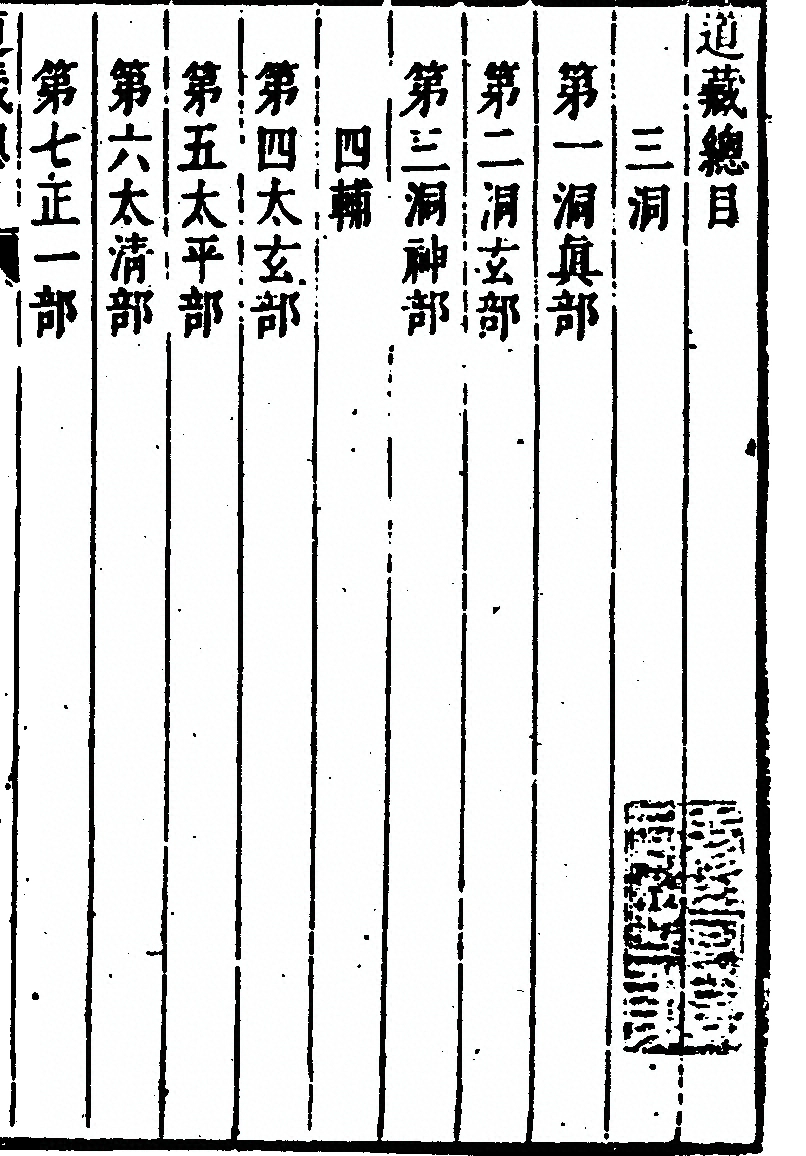 道藏總目
三洞
第一洞眞部
第二洞玄部
第三洞神部
四輔
第四太玄部
第五太平部
第六太清部
第七正一部